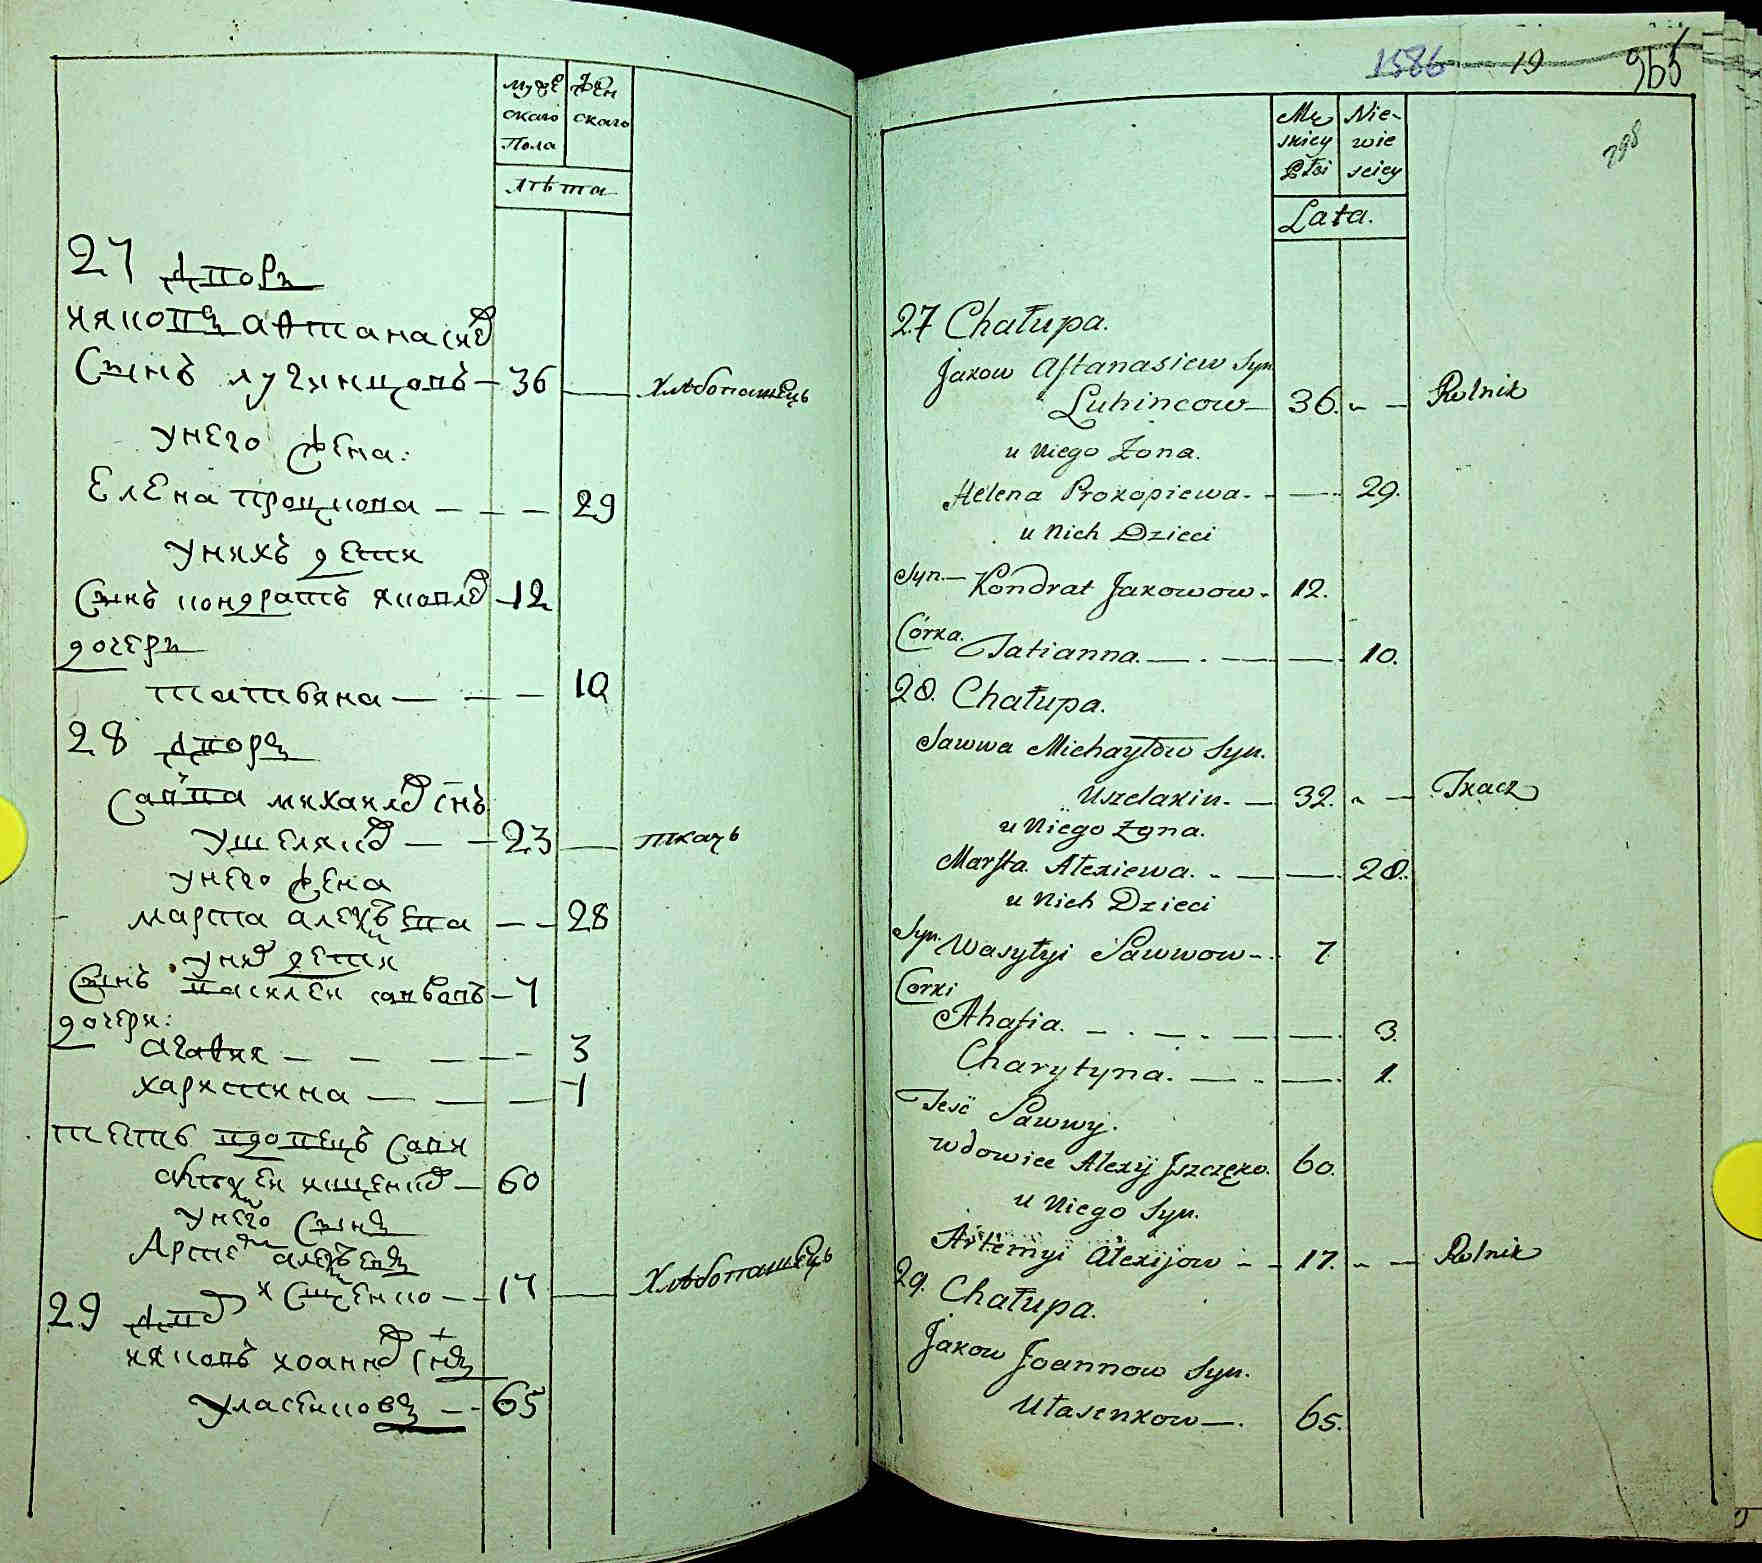 муже
скаго
Пола
жен
скаго
лѣта
27 дворъ
Иякопъ афтанасиев
Сынъ лугинцовъ — 36 — Хлѣбопашецъ
у него жена:
Елена процкова — — — 29
у нихъ дети
Сынъ кондратъ яковлев — 12
дочеръ
татвяна — — — 10
28 дворъ
Савва михаилов снъ
ушеляков — — 23 — ткачъ
у него жена
марта алексѣева — — 28
у них дети
Сынъ василеи саввовъ — 7
дочери:
агавия — — — — 3
харитина — — — 1
тесть вдовецъ Савы
алексеи ищенков — 60
у него Сынъ
Арте алексѣевъ
Ищенко — 17 — Хлѣбопашецъ
29 двор
ияковъ иоаннов снъ
уласенковъ — 65
1586 19 965
798
Mę
skiey
Płci
Nie-
wie
sciey
Lata.
27 Chałupa.
Jakow Aftanasiew Syn
Luhincow — 36. „ — Rolnik
u Niego Żona.
Helena Prokopiewa. — — 29.
u Nich Dzieci
Syn. — Kondrat Jakowow. 12.
Córka.
Tatianna. — . — — 10.
28. Chałupa.
Sawwa Michayłow Syn.
Uszelakin. — 32. „ — Tkacz
u Niego Żona.
Marfta Alexiewa. — — 28.
u Nich Dzieci
Syn. Wasyłyi Sawwow — 7
Corki
Ahafia. — . — . — — 3.
Charytyna. — . — 1.
Teść Sawwy.
wdowiec Alexij Jszczęko. 60.
u Niego Syn.
Artemyi Alexijow — 17. „ — Rolnik
29. Chałupa.
Jakow Joannow Syn.
Ułasenkow — . 65.